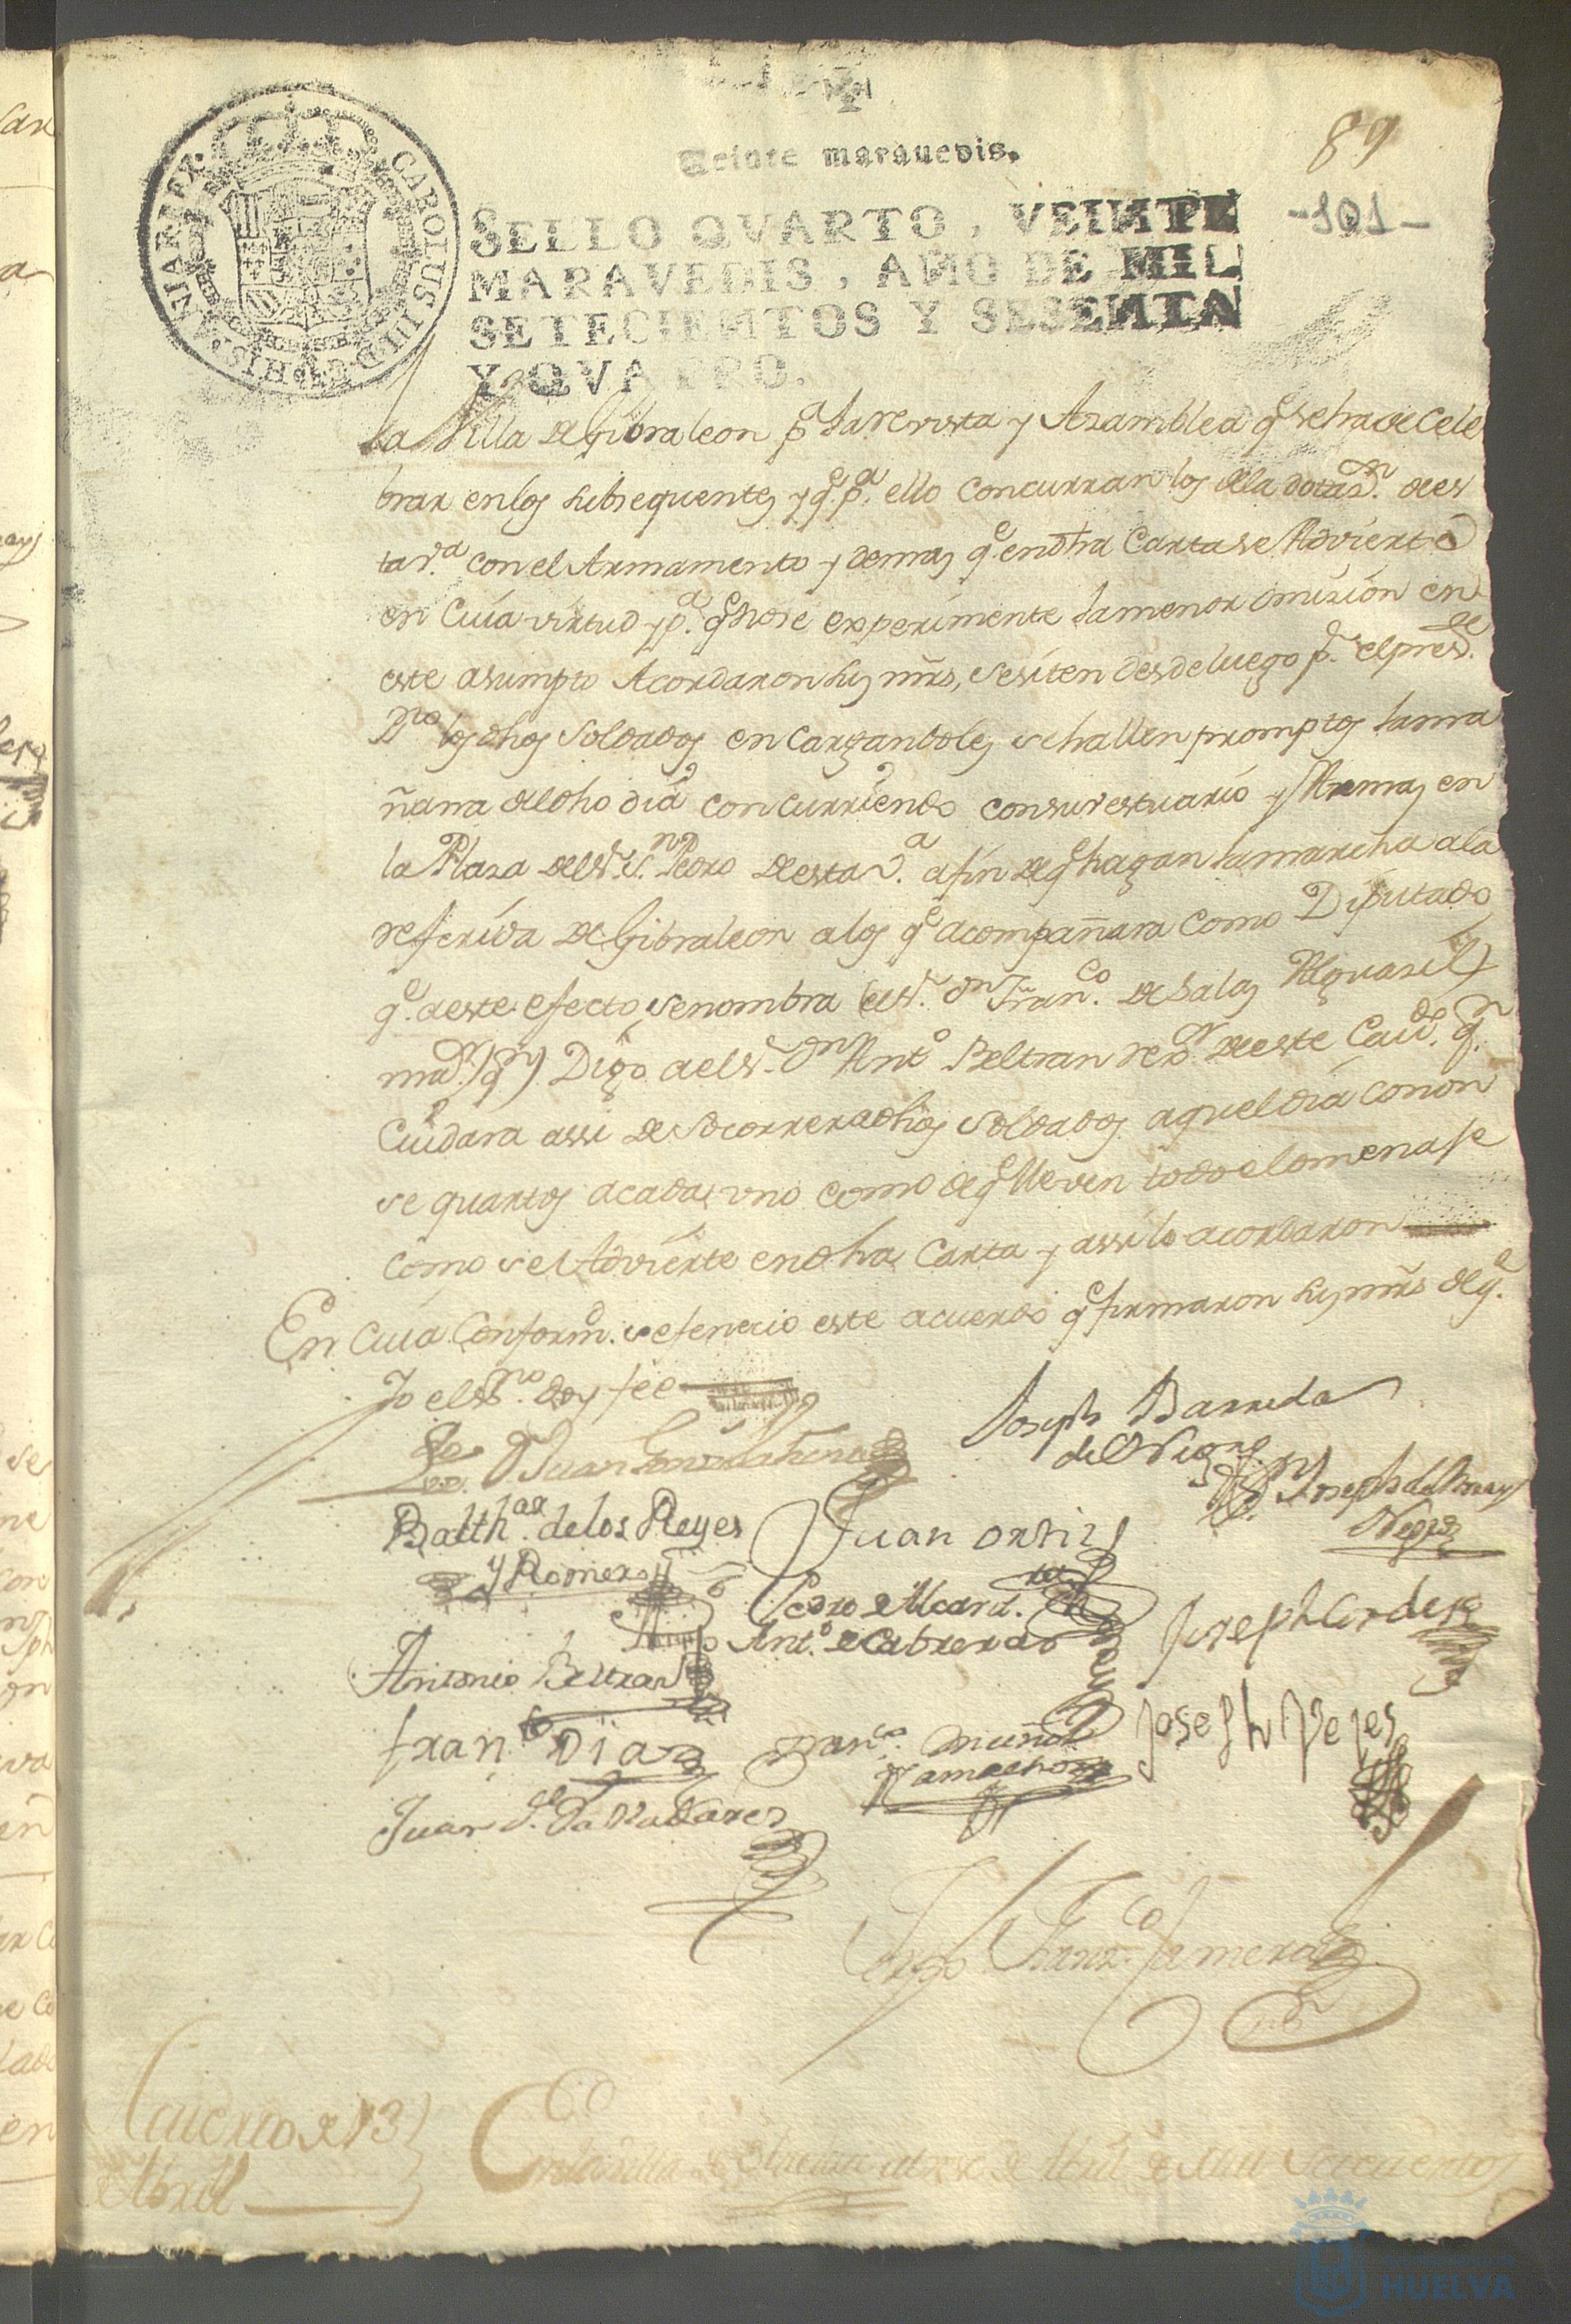 89
-101-
Veinte marauedis.
SELLO QVARTO, VEINTE
MARAVEDIS, AÑO DE MIL
SETECIENTOS Y SESENTA
Y QVATRO.
CAROLUS III D.G. HISPANIAR. REX.
la Villa de Gibraleon pa. la revista y Asamblea qe. se ha de Cele
brar en los subsequentes y qe. pa. ello concurran los de la dotazn. de es
ta va. con el Armamento y demas qe. en dha Carta se Advierte
en Cuia virtud y pa. qe no se experimente la menor omision en
este asumpto Acordaron sus mrs, se siten desde luego pr. el presde.
Dno los dhos Soldados encargandoles se hallen promptos la ma
ñana del dho dia concurriendo con su vestuario y Armas en
la Plaza del Sr. Sn. Pedro de esta va. a fin de qe hagan la marcha a la
referida de Gibraleon a los qe acompañara como Diputado
qe. a este efecto se nombra (el Sr. Dn Franco. de Salas Alguasil
mor.) Digo a el Sr. Dn Anto Beltran rexor. de este Cavdo. qn.
Cuidara assi de socorrer a dhos soldados aquel dia con on
se quartos a cada uno como de qe lleven todo el omenaje
como se Advierte en dha Carta y assi lo acordaron
En Cuia Conformd. se fenecio este acuerdo qe firmaron sus mrs de qe.
Yo el Ssno. doy fee
Joseph Barreda
del Negro
Balthar. de los Reyes
y Romero
Juan Ortiz
Negro
Pedro de Alcard.
Anto. de Cabrera
Joseph Cordero
Antonio Beltran
Franco Diaz
Franco. Muñoz
Camacho
Joseph Reyes
Juan de
Acuerdo de 13
de Abril
En la villa de Huelva en trese de Abril de Mill Setecientos
HUELVA